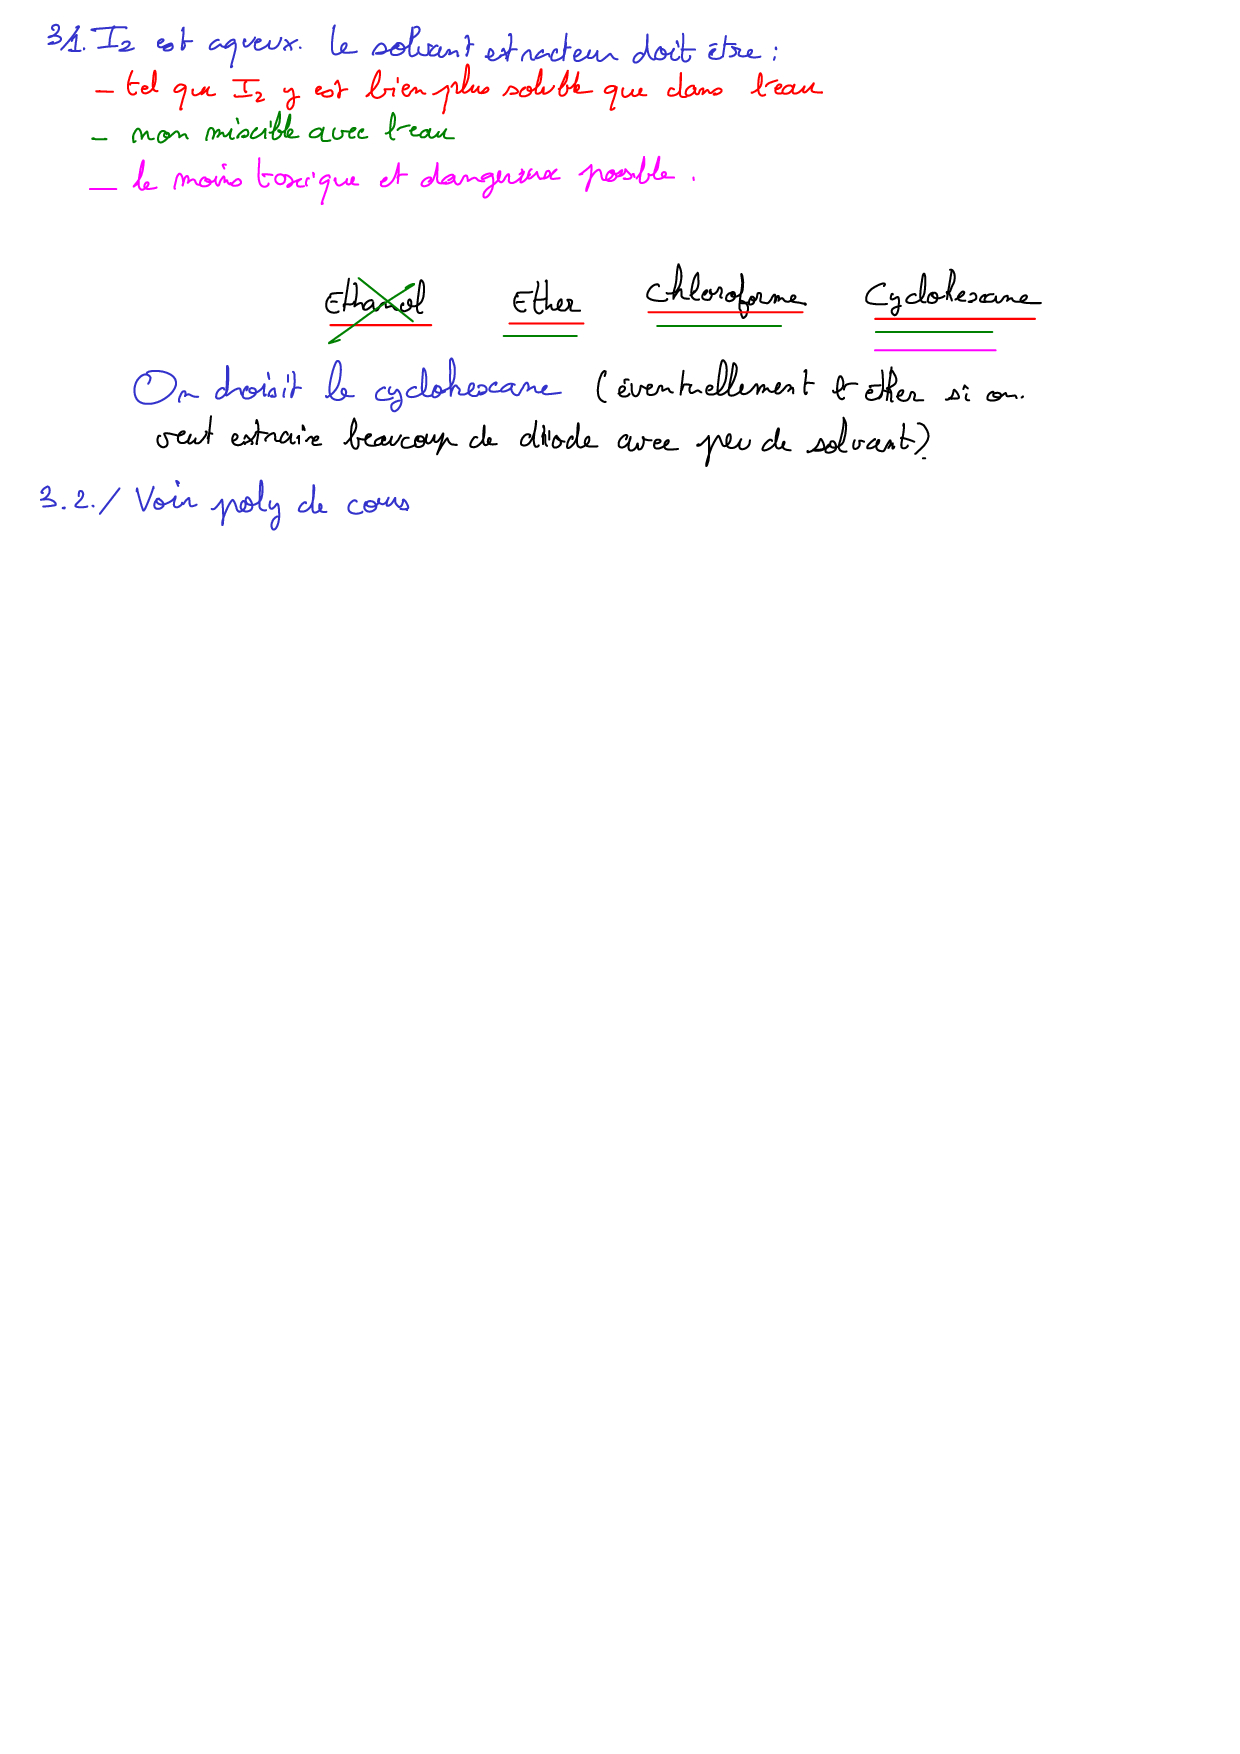 3.1. I2 est aqueux. Le solvant extracteur doit être :
- tel que I2 y est bien plus soluble que dans l'eau
- non miscible avec l'eau
- le moins toxique et dangereux possible.
Ethanol Ether Chloroforme Cyclohexane
On choisit le cyclohexane (éventuellement l'éther si on
veut extraire beaucoup de diiode avec peu de solvant).
3.2./ Voir poly de cours